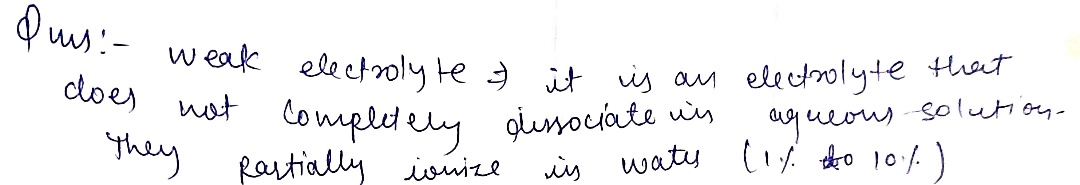 Ans:- weak electrolyte → it is an electrolyte that
does not completely dissociate in aqueous solution.
They partially ionize in water (1% to 10%)